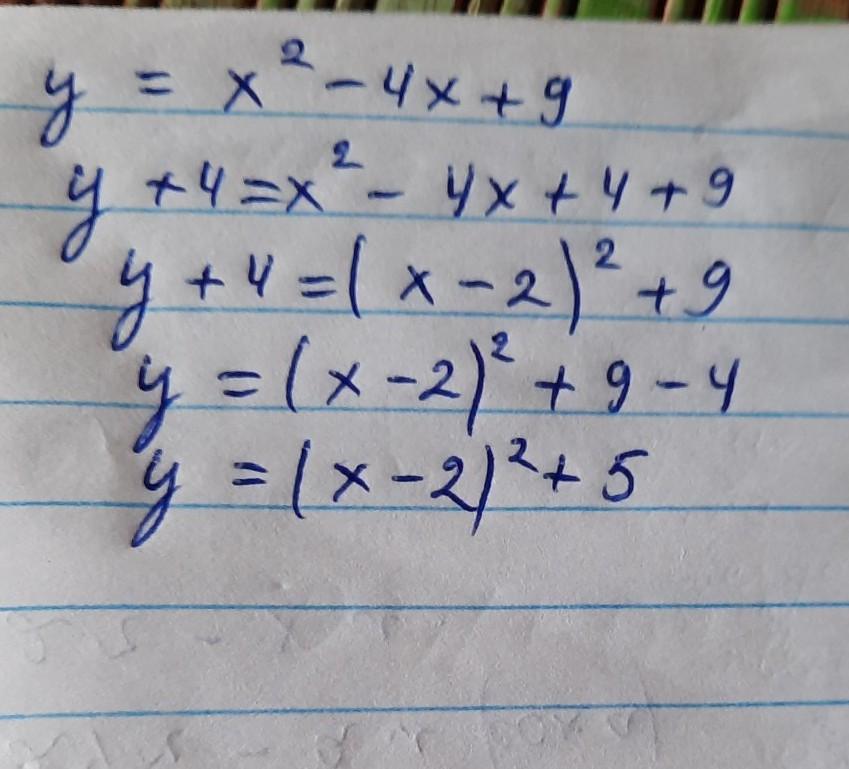 y = x² - 4x + 9
y + 4 = x² - 4x + 4 + 9
y + 4 = (x - 2)² + 9
y = (x - 2)² + 9 - 4
y = (x - 2)² + 5